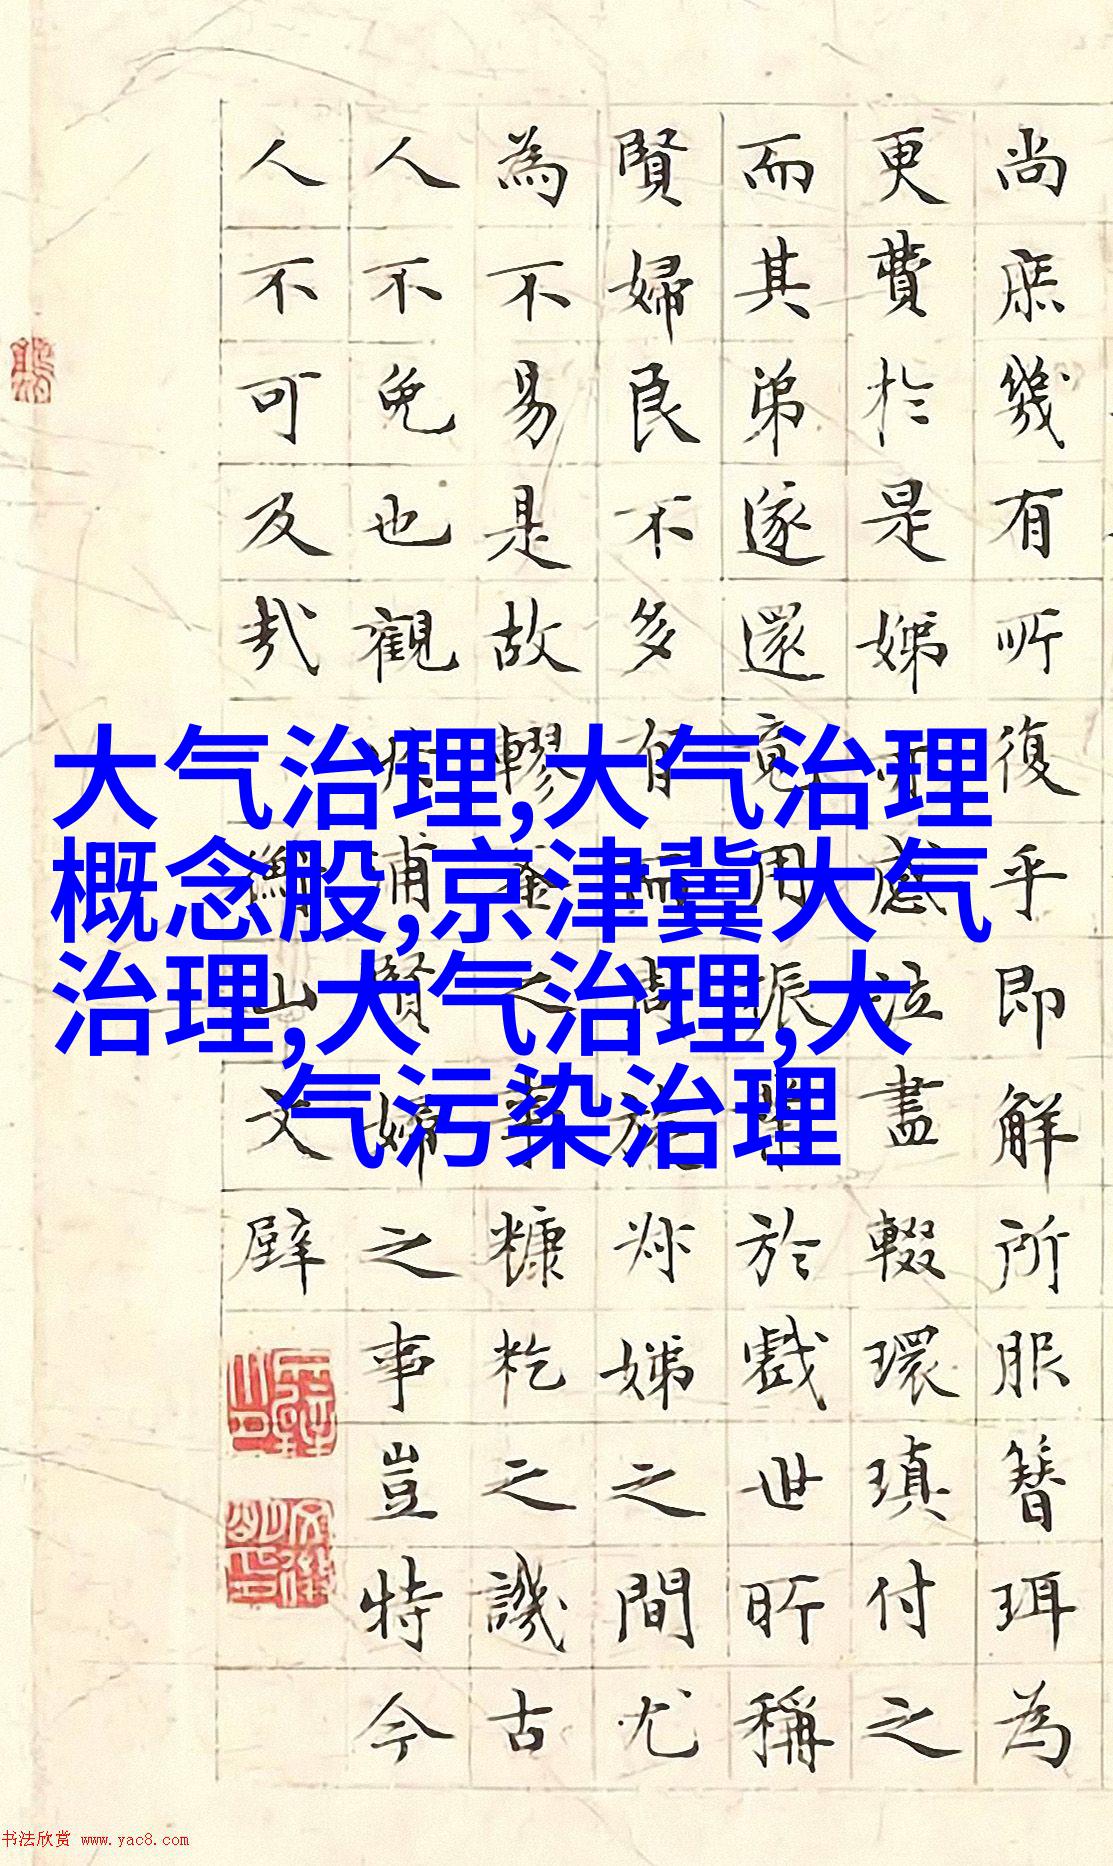 尚庶幾有所復乎即解所服簪珥為
更費於是娣感泣盡輟環瑱付之
而其弟遂還竟用振於戲世所稱
賢婦良不多有而周旋於娣之間尤
為不易是故轑釜之糠籺之譏古
人不免也觀浦賢婦之事豈特今
人不可及哉
衡山文壁
大气治理,大气治理
概念股,京津冀大气
治理,大气治理,大
气污染治理
书法欣赏 www.yac8.com